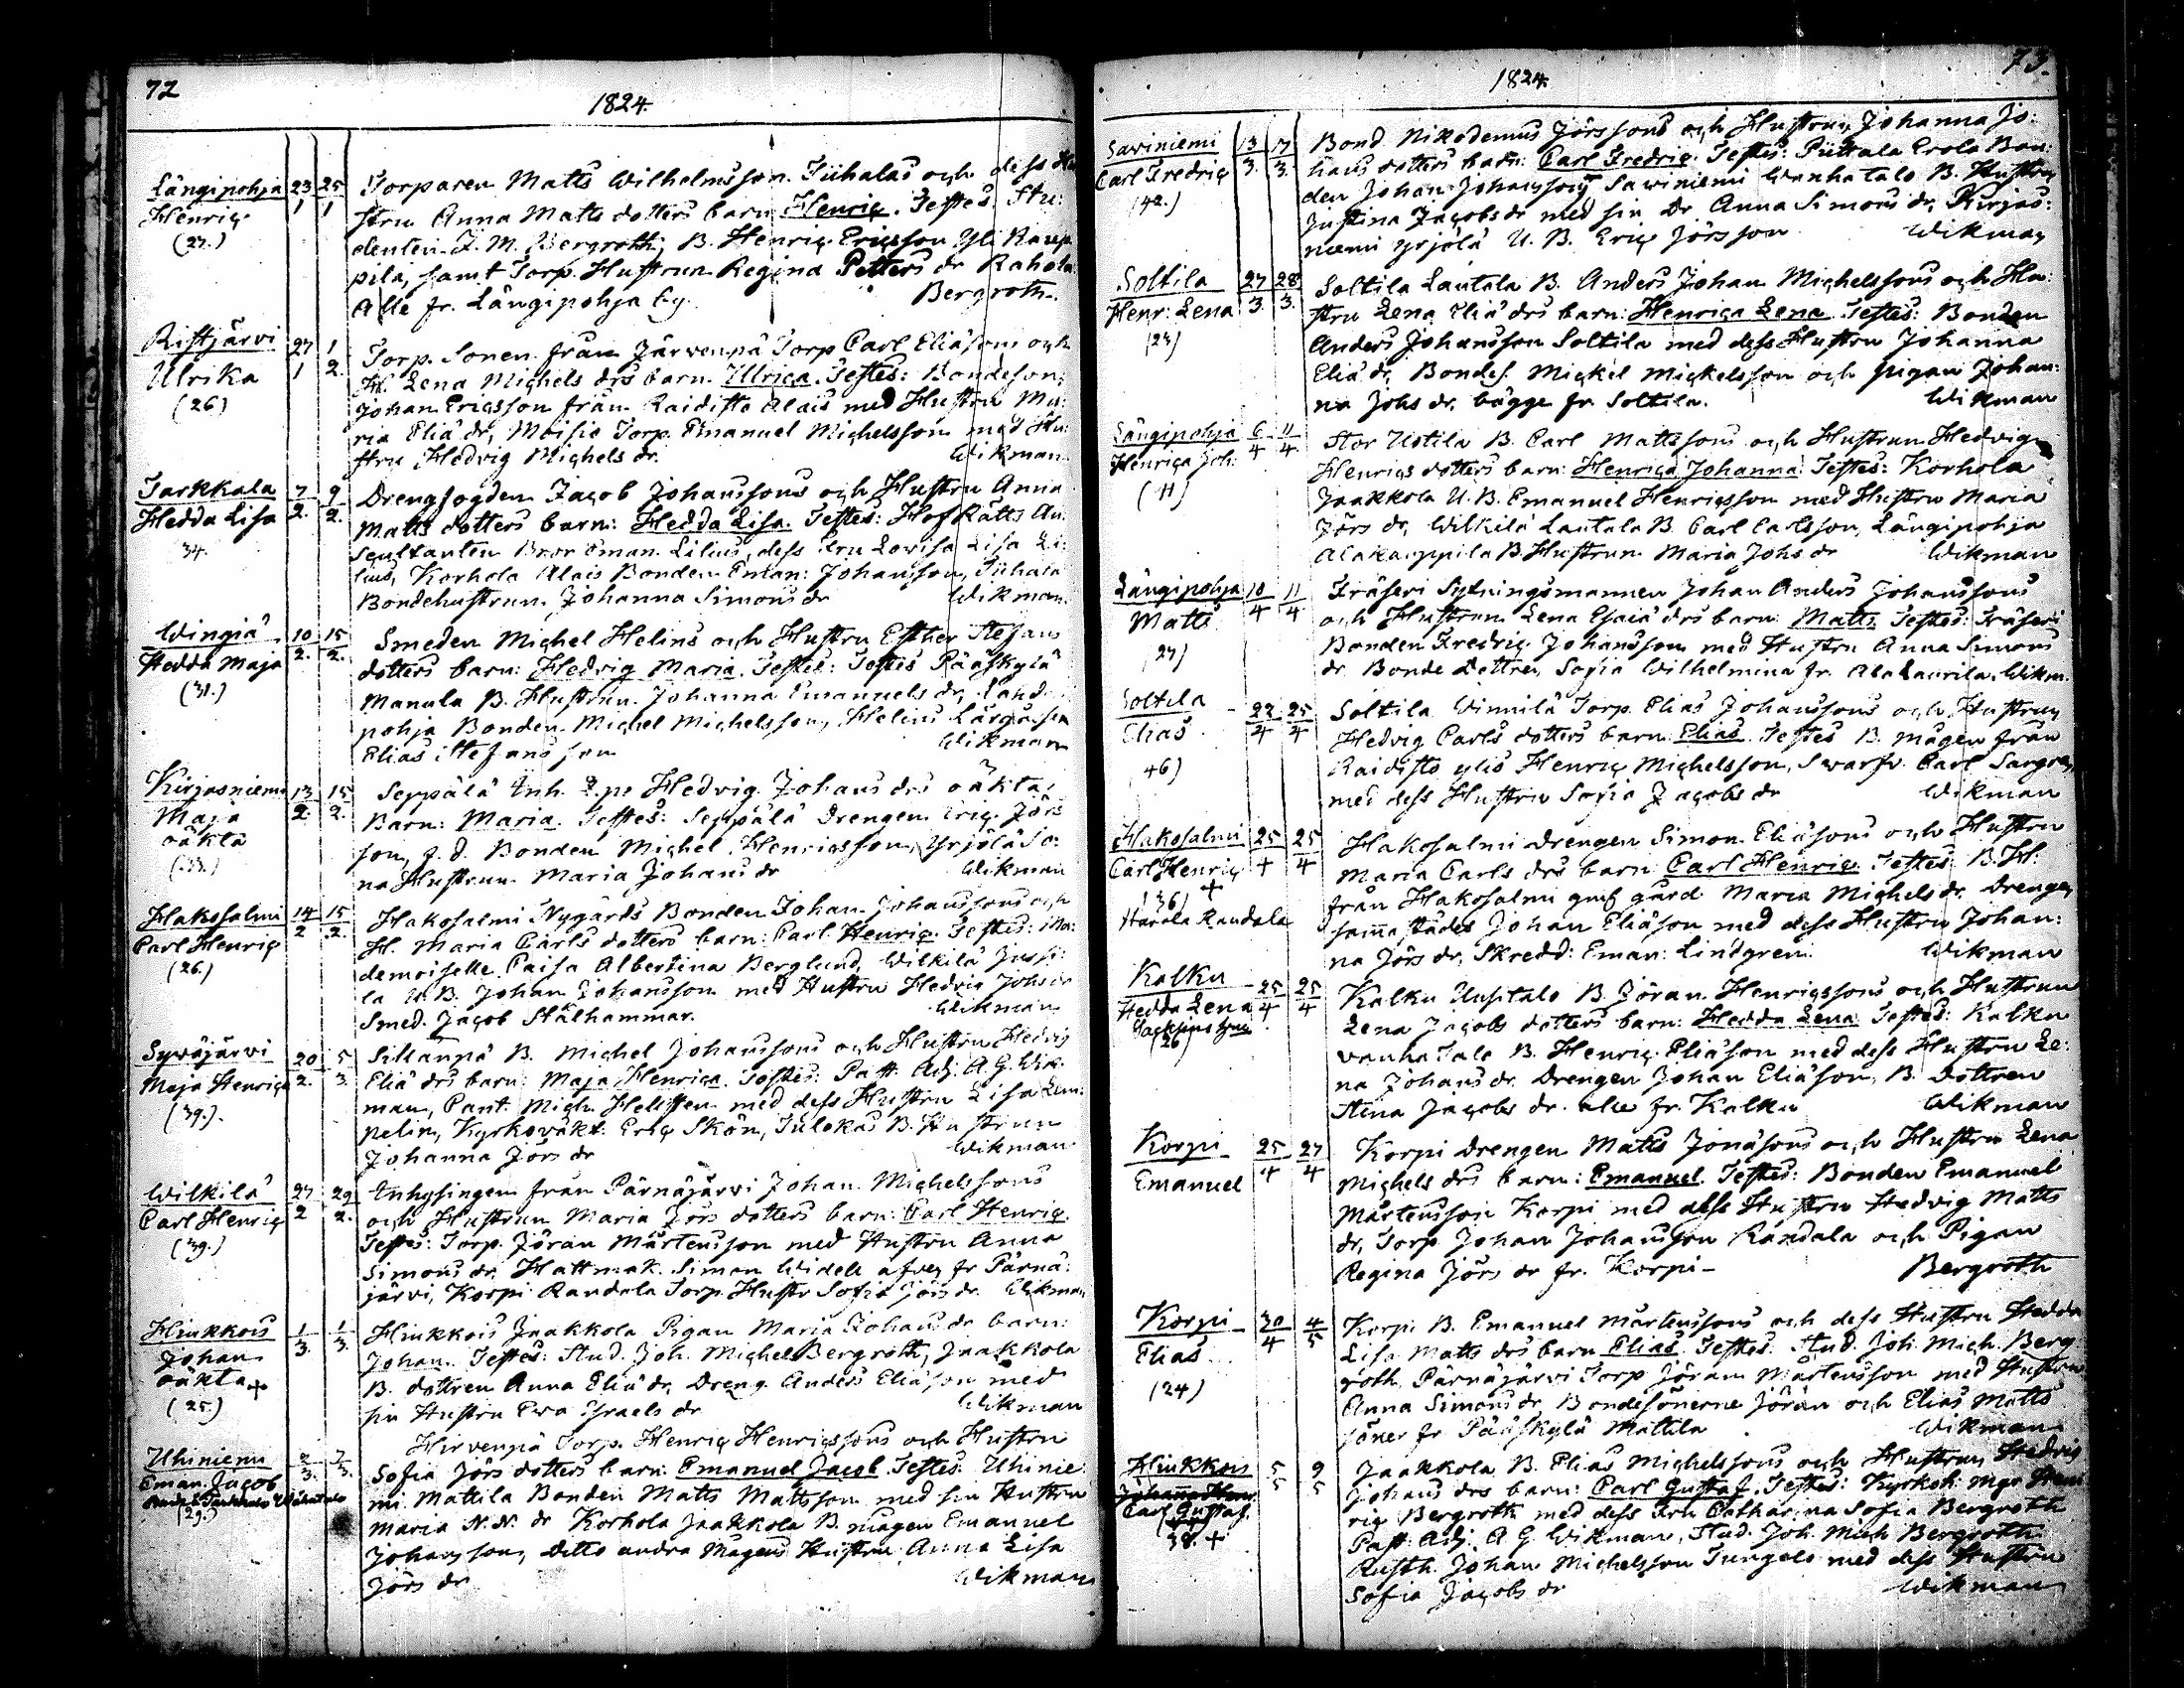 72
1824.
Längipohja 23/1 25/1 Torparen Matts Wilhelmsson Tiihalas och dess Hu
Henric stru Anna Matts dotters barn Henric. Testes. Stu:
(27.) denten J. M. Bergroth, B. Henric Ericsson Yli Karp
pila, samt Torp. Hustrun Regina Petters dr Rahola
Alle fr. Längipohja by. Bergroth.
Ristjärvi 27/1 1/2. Torp. Sonen från Järvenpä Torp Carl Eliäsons och
Ulrika H. Lena Michels drs barn. Ulrica. Testes: Bondeson:
(26) Johan Ericsson från Raidisto Alais med Hustru Ma:
ria Eliä dr, Moisio Torp. Emanuel Michelsson med Hu:
stru Hedvig Michels dr. Wikman.
Tarkkala 7/2. 9/2. Drengfogden Jacob Johanssons och Hustru Anna
Hedda Lisa Matts dotters barn: Hedda Lisa. Testes: HofRätts Au:
34. scultanten Bror Eman. Lilius, dess Fru Lovisa Lisa Li:
lius, Korhola Alais Bonden Eman: Johansson, Tiihala
Bondehustrun Johanna Simons dr Wikman.
Wingiä 10/2. 15/2. Smeden Michel Helins och Hustru Esther Stefans
Hedda Maja dotters barn: Hedvig Maria. Testes: Testes Pääskylä
(31.) Manula B. Hustrun Johanna Emanuels dr, Länd
pohja Bonden Michel Michelsson, Helins Lärgåssen
Elias Stefansson Wikman
Kirjasniemi 13/2. 15/2. Seppälä Inh. Hedvig Johans drs oäkta
Maja Barn: Maria. Testes: Seppälä Drengen Eric Jörs
oäkta son, f. d. Bonden Michel Henricsson, Yrjölä So:
(33.) na Hustrun Maria Johans dr Wikman
Hakosalmi 14/2 15/2. Hakosalmi Nygårds Bonden Johan Johanssons och
Carl Henric H. Maria Carls dotters barn: Carl Henric. Testes: Ma:
(26.) demoiselle Caisa Albertina Berglund, Wilkilä Jussi:
la U. B. Johan Johansson med Hustru Hedvig Johs dr
Smed. Jacob Stålhammar. Wikman
Syväjärvi 20/2. 5/3. Sillanpä B. Michel Johanssons och Hustru Hedvig
Maja Henrica Eliä drs barn: Maja Henrica. Testes: Past. Adj. A. G. Wik:
(39.) man, Cant. Mich. Hellsten med dess Hustru Lisa Lem:
pelin, Kyrkovakt. Eric Skön, Tulokas B. Hustrun
Johanna Jörs dr Wikman
Wilkilä 27/2 29/2. Inhysingen från Pärnäjärvi Johan Michelssons
Carl Henric och Hustrun Maria Jörs dotters barn: Carl Henric.
(39.) Testes: Torp. Jöran Mårtensson med Hustru Anna
Simons dr, Hattmak. Simon Widell afven fr Pärnä:
järvi, Korpi Randala Torp. Hustr Sofia Jörs dr. Wikman
Hinkkois 1/3. 1/3. Hinkkois Jaakkola Pigan Maria Johans dr barn:
Johan Johan. Testes: Stud. Joh. Michel Bergroth, Jaakkola
oäkta + B. dottren Anna Eliä dr, Dreng. Anders Eliäson med
(25.) sin Hustru Ewa Israels dr Wikman
Uhiniemi 2/3. 7/3. Hirvenpä Torp. Henric Henricssons och Hustru
Eman. Jacob Sofia Jörs dotters barn: Emanuel Jacob. Testes. Uhinie
(29.) mi Mattila Bonden Matts Mattsson med sin Hustru
Maria N. N. dr Korhola Jaakkola B. mågen Emanuel
Johansson, Ditto andra Mågens Hustru Anna Lisa
Jörs dr Wikman
73.
1824.
Saviniemi 13/3. 17/3. Bond. Nikodemus Jörssons och Hustru Johanna Jo:
Carl Fredric hans dotters barn: Carl Fredric. Testes: Püttala Erola Bon:
(42.) den Johan Johansson, Saviniemi Wanhatalo B. Hustru
Justina Jacobs dr med sin Dr Anna Simons dr, Kirjas:
niemi Yrjölä U. B. Eric Jörsson Wikman
Soltila 27/3 28/3. Soltila Lautala B. Anders Johan Michelssons och Hu:
Henr: Lena stru Lena Eliä drs barn: Henrica Lena. Testes: Bonden
(23) Anders Johansson Soltila med dess Hustru Johanna
Eliä dr, Bondes. Mickel Mickelsson och pigan Johan:
na Johs dr, bägge fr. Soltila. Wikman
Längipohja 6/4 11/4. Stor Uotila B. Carl Mattssons och Hustrun Hedvig
Henrica Joh. Henrics dotters barn: Henrica Johanna. Testes: Korhola
(41) Jaakkola U. B. Emanuel Henricsson med Hustru Maria
Jörs dr, Wilkilä Lautala B. Carl Carlsson, Längipohja
Alakarppila B. Hustrun Maria Johs dr Wikman
Längipohja 10/4 11/4 Träseri Sytningsmannen Johan Anders Johanssons
Matts och Hustrun Lena Esaiä drs barn: Matts. Testes: Träseri
(27) Bonden Fredric Johansson med Hustru Anna Simons
dr Bonde Dottren Sofia Wilhelmina fr. AlaLaurila. Wikm.
Soltila 23/4 25/4 Soltila Winnilä Torp. Elias Johanssons och Hustru
Elias Hedvig Carls dotters barn: Elias. Testes B. mågen från
46) Raidisto ylis Henric Michelsson, Swarfv. Carl Sargren
med dess Hustru Sofia Jacobs dr Wikman
Hakosalmi 25/4 25/4 Hakosalmi drengen Simon Eliäsons och Hustru
Carl Henric + Maria Carls drs barn: Carl Henric. Testes: B. H.
(36) från Hakosalmi gård Maria Michels dr, Drengen
Harala Randala sam̃astädes Johan Eliäson med dess Hustru Johan:
na Jörs dr, Skredd: Eman: Lindgren. Wikman
Kalku 25/4 25/4 Kalku Uusitalo B. Jöran Henricssons och Hustrun
Hedda Lena Lena Jacobs dotters barn: Hedda Lena. Testes: Kalku
(26) vanha Talo B. Henric Eliäson med dess Hustru Le:
na Johans dr. Drengen Johan Eliäson, B. Dottren
Stina Jacobs dr. alle fr. Kalku Wikman
Korpi 25/4 27/4 Korpi drengen Matts Jonäsons och Hustru Lena
Emanuel Michels drs barn: Emanuel. Testes: Bonden Emanuel
Mårtensson Korpi med dess Hustru Hedvig Matts
dr, Torp. Johan Johansson Randala och Pigan
Regina Jörs dr fr. Korpi – Bergroth
Korpi 30/4 4/5 Korpi B. Emanuel Mårtenssons och dess Hustru Hedda
Elias Lisa Matts drs barn Elias. Testes. Stud. Joh. Mich. Berg
(24) roth, Pärnäjärvi Torp Jöran Mårtensson med Hustru
Anna Simons dr, Bondesönerne Jöran och Elias Matts
söner fr Pääskylä Mattila Wikman
Hinkkois 5/5 9/5 Jaakkola B. Elias Michelssons och Hustrun Hedvig
Carl Gustaf. Johans drs barn: Carl Gustaf. Testes: Kyrkoh. Mgr Hen
38. + ric Bergroth med dess Fru Catharina Sofia Bergroth
Past. Adj. A G Wikman, Stud. Joh. Mich Bergroth
Rusth. Johan Michelsson Tungelo med dess Hustru
Sofia Jacobs dr Wikman